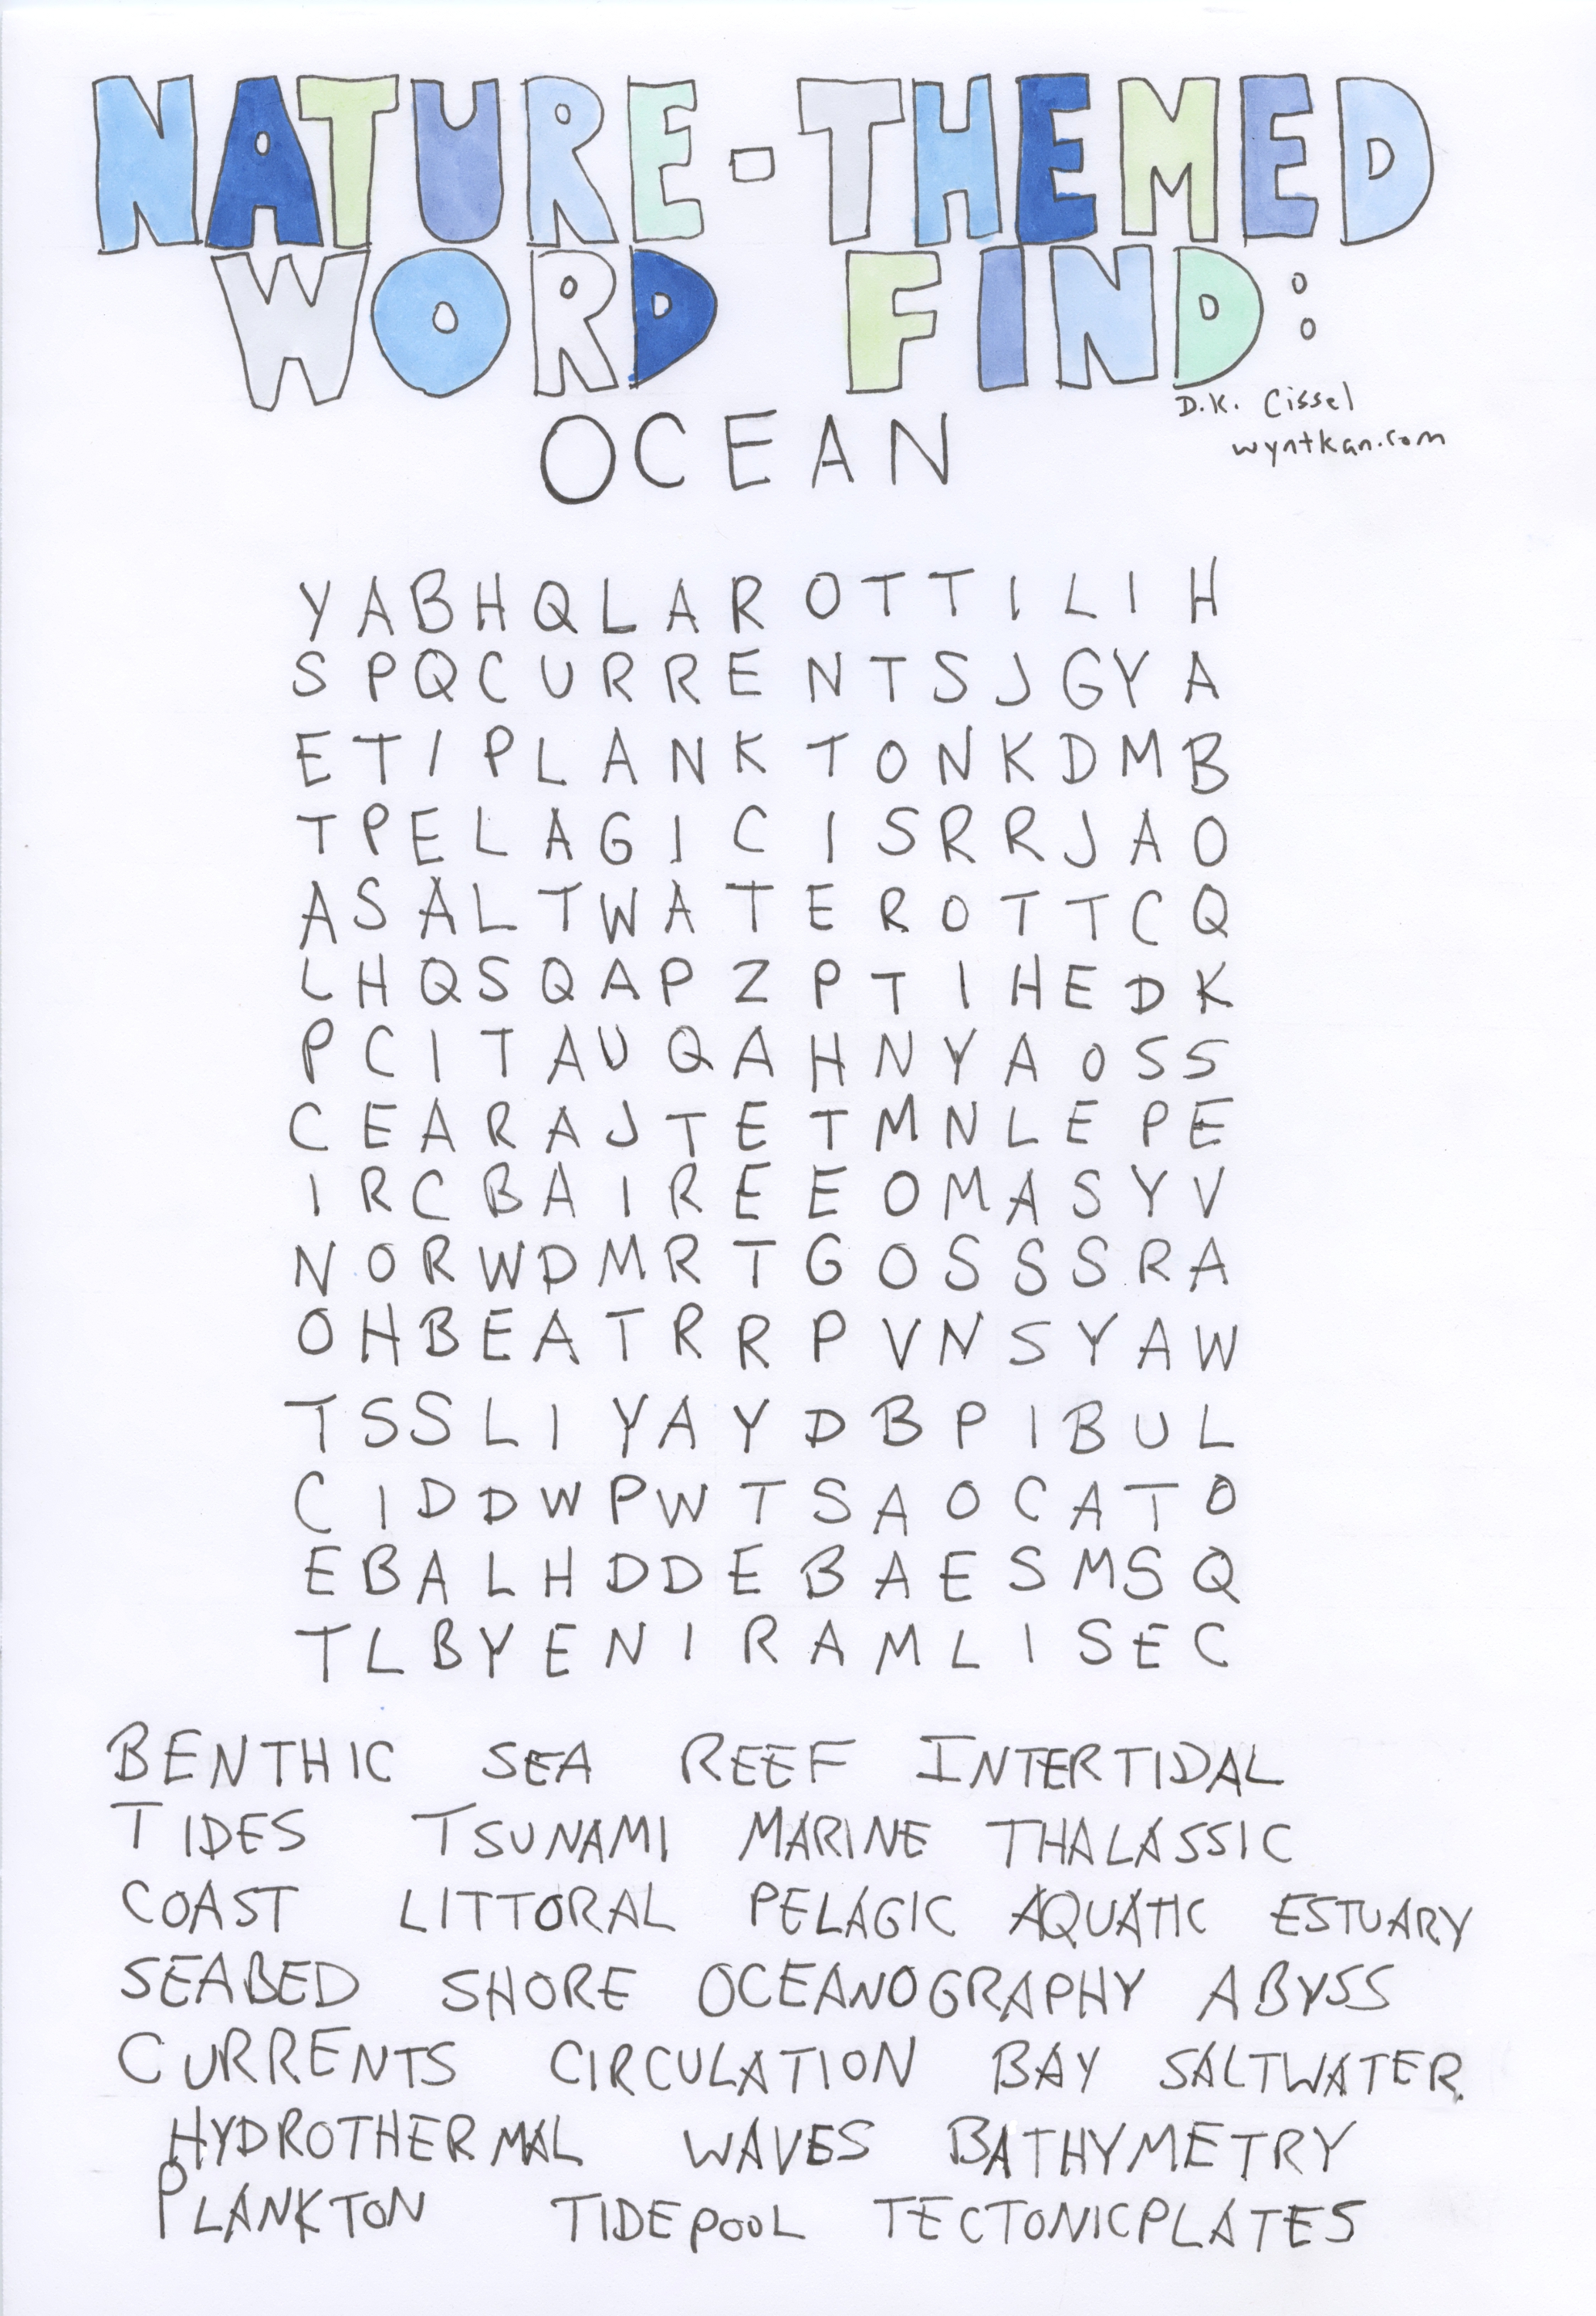 NATURE-THEMED
WORD FIND:
D.K. Cissel
OCEAN
wyntkan.com
Y A B H Q L A R O T T I L I H
S P Q C U R R E N T S J G Y A
E T I P L A N K T O N K D M B
T P E L A G I C I S R R J A O
A S A L T W A T E R O T T C Q
L H Q S Q A P Z P T I H E D K
P C I T A U Q A H N Y A O S S
C E A R A J T E T M N L E P E
I R C B A I R E E O M A S Y V
N O R W D M R T G O S S S R A
O H B E A T R R P V N S Y A W
T S S L I Y A Y D B P I B U L
C I D D W P W T S A O C A T O
E B A L H D D E B A E S M S Q
T L B Y E N I R A M L I S E C
BENTHIC SEA REEF INTERTIDAL
TIDES TSUNAMI MARINE THALASSIC
COAST LITTORAL PELAGIC AQUATIC ESTUARY
SEABED SHORE OCEANOGRAPHY ABYSS
CURRENTS CIRCULATION BAY SALTWATER
HYDROTHERMAL WAVES BATHYMETRY
PLANKTON TIDEPOOL TECTONICPLATES